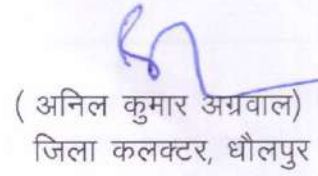 ( अनिल कुमार अग्रवाल)
जिला कलक्टर, धौलपुर